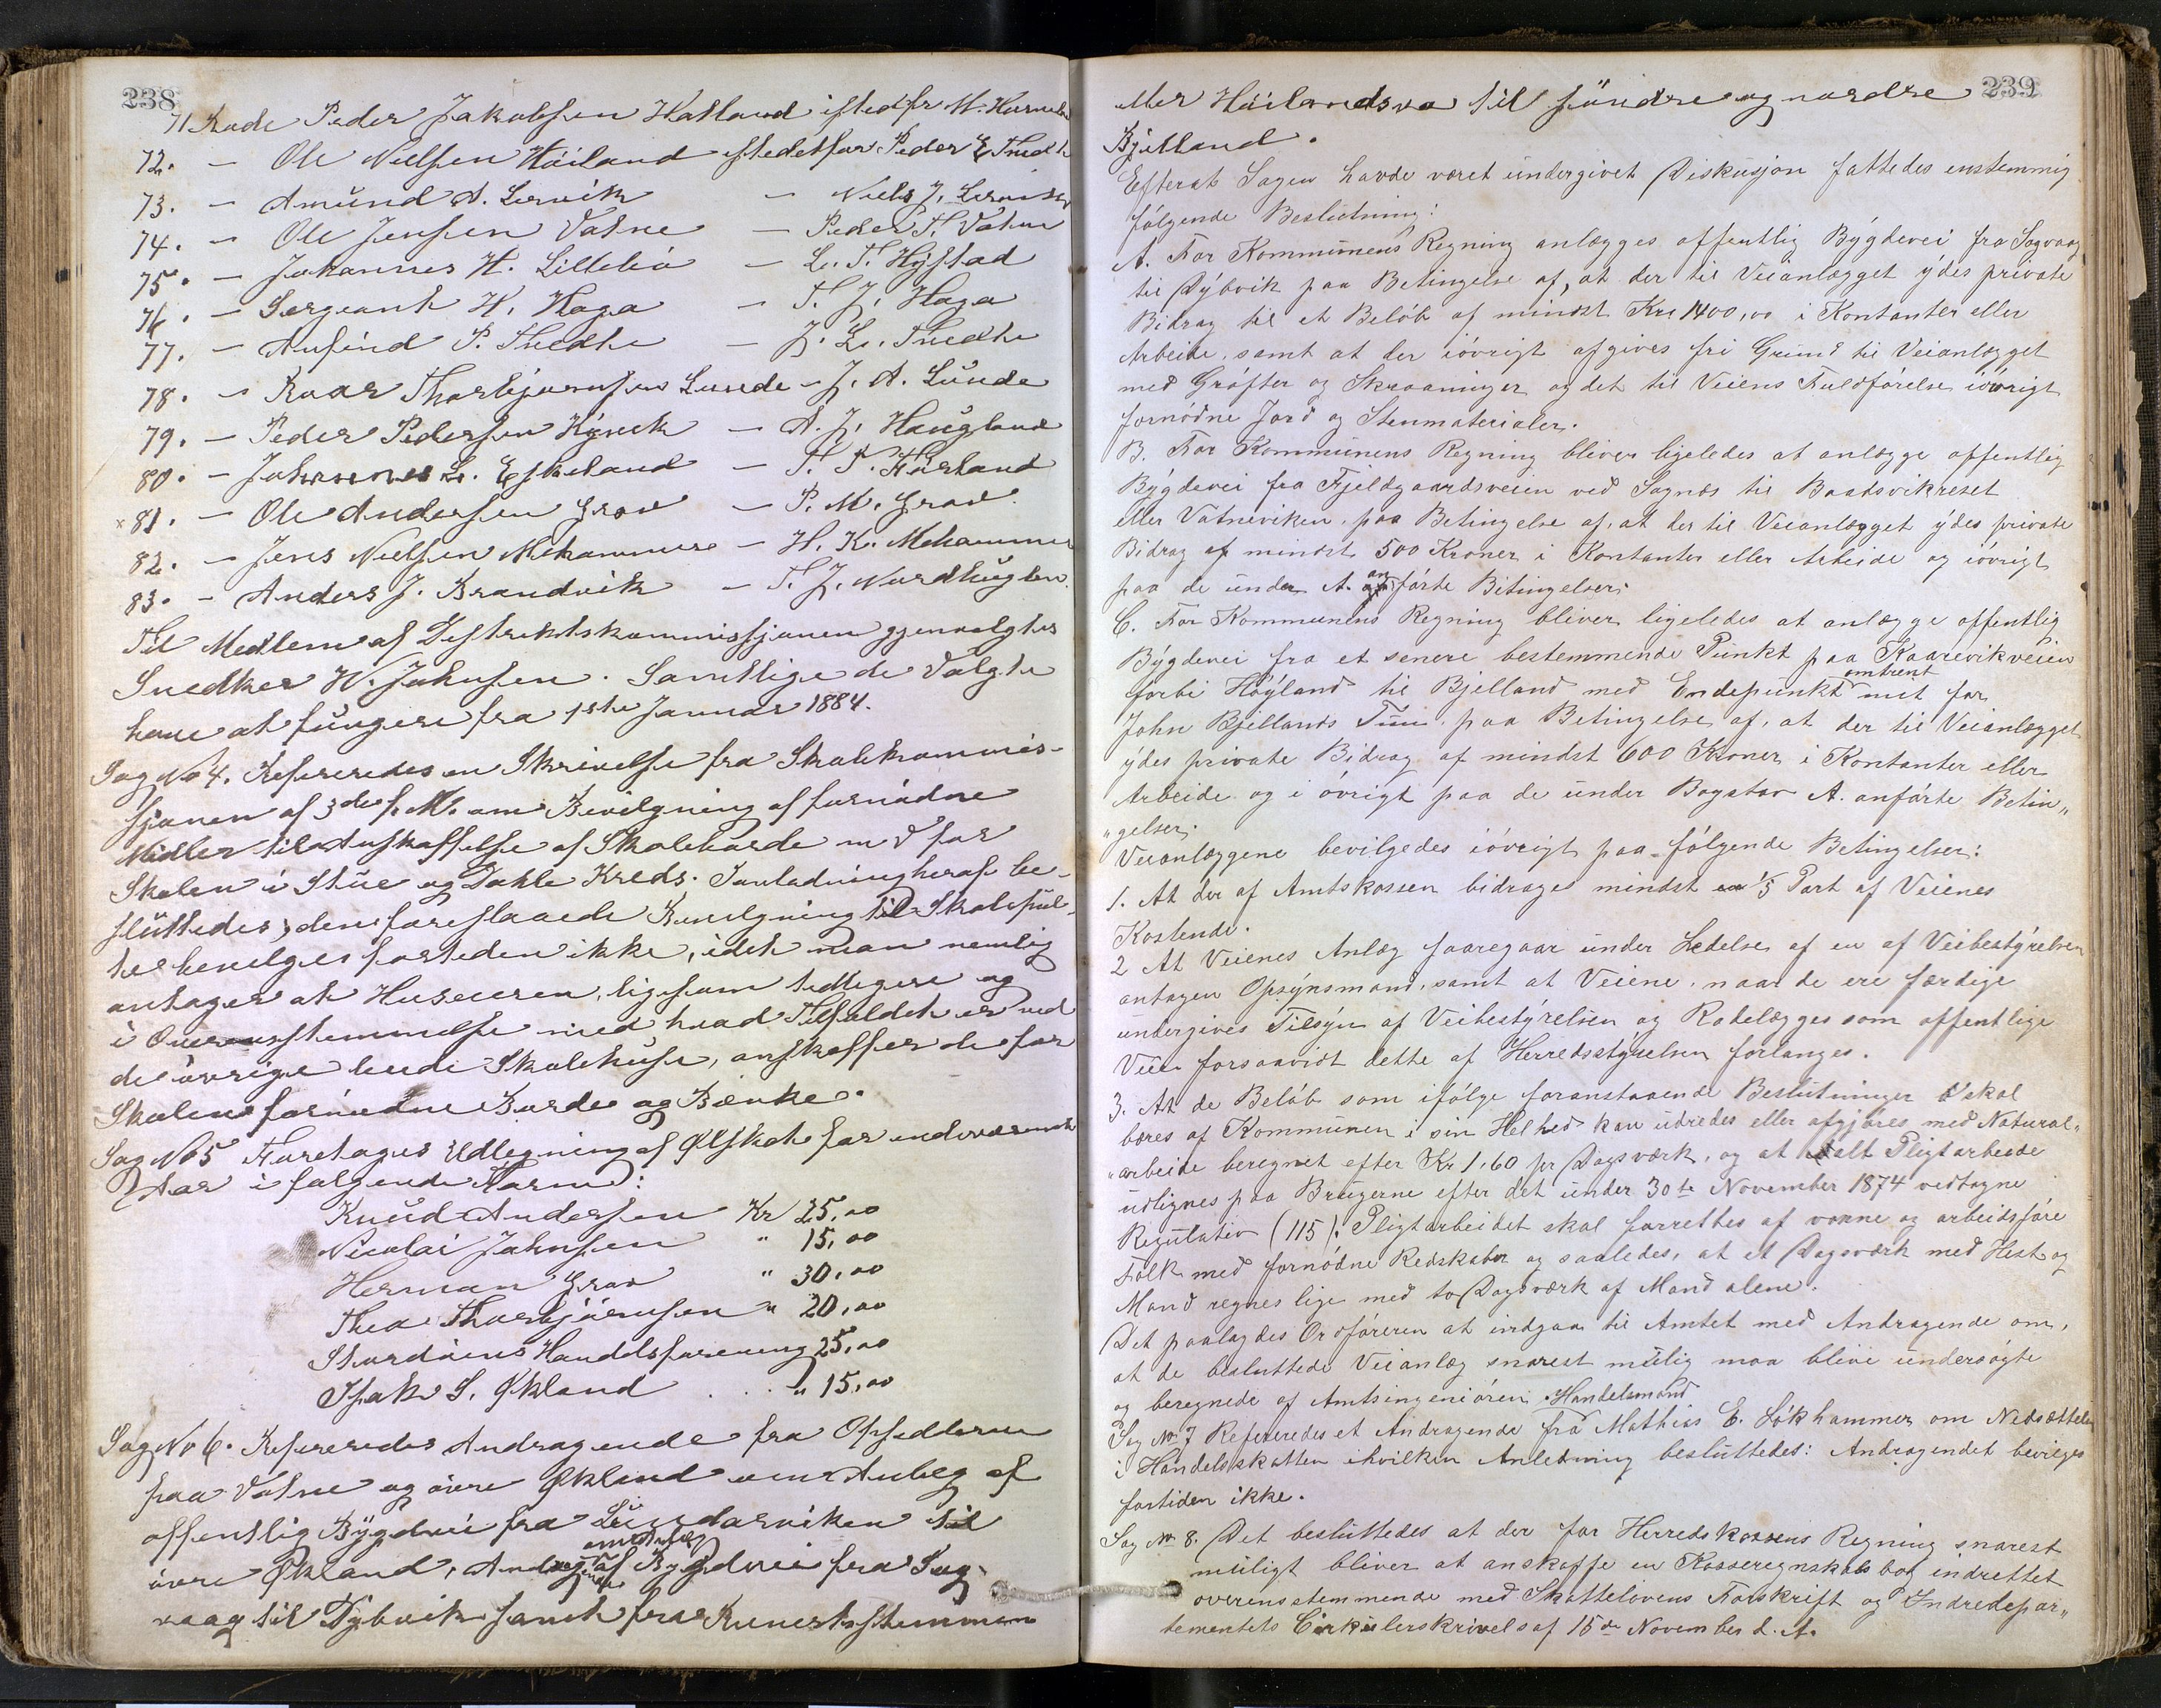 238
71 Rode Peder Jakobsen Hatland istedfr M. Hornela
72. - Ole Nielsen Höiland istedetfor Peder E Tredt
73. - Amund A. Lervik - Niels J. Lervik
74. - Ole Jensen Vatne - Peder T. Vatne
75. - Johannes H. Lillebö - L. T. Hystad
76. - Sergeant H. Haga - T. J. Haga
77. - Anfind P. - J. L.
78. - Roar Thorbjørnsen Lunde - J. A. Lunde
79. - Peder Pedersen - A. J. Haugland
80. - Johannes L. Eskeland - T. T.
x 81. - Ole Andersen Grov - P. M. Grov
82. - Jens Nielsen Mehammer - H. K. Mehammer
83. - Anders J. Brandvik - T. J. Nordhuglen
Til Medlem af Distriktskommissjonen gjenvalgtes
Snedker H. Johnsen. Samtlige de Valgte
have at fungere fra 1ste Januar 1884.
Sag No 4. Refereredes en Skrivelse fra Skolekommis-
sjonen af 3die f. M. om Bevilgning af fornödne
Midler til Anskaffelse af Skoleborde m v for
Skolen i Stue og Dahle Kreds. I anledning heraf be-
sluttedes; den foreslaaede Bevilgning til Skolepul-
ter bevilges fortiden ikke, idet man nemlig
antager at Huseieren, ligesom tidligere og
i Overensstemmelse med hvad Tilfældet er ved
de övrige leiede Skolehuse, anskaffer de for
Skolen fornödne Borde og Bænke.
Sag No 5 Foretages Udlegning af Ølskat for indeværende
Aar i følgende Form:
Knud Andersen Kr 25,00
Nicolai Johnsen " 15,00
Herman Grov " 30,00
Thea Thorbjörnsen " 20,00
Stordöens Handelsforening 25,00
Isak S. Økland . . . " 15,00
Sag No 6. Refereredes Andragende fra Opsidderne
paa Vatne og övre Økland om Anlæg af
offentlig Bygdevei fra Lundarviken til
om Anlæg
övre Økland, Andragende af Bygdevei fra Sag-
vaag til Dybvik samt fra
239
eller Höilandsva til söndre og nordre
Bjelland.
Efterat Sagen havde været undergivet Diskusjon fattedes enstemmig
fölgende Beslutning:
A. For Kommunens Regning anlægges offentlig Bygdevei fra Sagvaag
til Dybvik paa Betingelse af, at der til Veianlægget ydes private
Bidrag til et Belöb af mindst Kr. 1400,00 i Kontanter eller
Arbeide, samt at der iövrigt afgives fri Grund til Veianlægget
med Gröfter og Skraaninger og det til Veiens Fuldförelse iövrigt
fornödne Jord og Stenmaterialer.
B. For Kommunens Regning bliver ligeledes at anlægge offentlig
Bygdevei fra Fjeldgaardsveien ved Sagnæs til Baatsvikreset
eller Vatneviken, paa Betingelse af, at der til Veianlægget ydes private
Bidrag af mindst 500 Kroner i Kontanter eller Arbeide og iövrigt
paa de under A. anförte Betingelser.
C. For Kommunens Regning bliver ligeledes at anlægge offentlig
Bygdevei fra et senere bestemmende Punkt paa Kaarevikveien
forbi Höyland til Bjelland med Endepunkt omtrent mit for
John Bjellands Tun paa Betingelse af, at der til Veianlægget
ydes private Bidrag af mindst 600 Kroner i Kontanter eller
Arbeide og i övrigt paa de under Bogstav A. anförte Betin„
„gelser.
Veianlæggene bevilgedes iövrigt paa fölgende Betingelser:
1. At der af Amtskassen bidrages mindst 1/5 Part af Veienes
Kostende.
2 At Veienes Anlæg foregaar under Ledelse af en af Veibestyrelsen
antagen Opsynsmand, samt at Veiene, naar de ere færdige
undergives Tilsyn af Veibestyrelsen og Rodelægges som offentlige
Veie forsaavidt dette af Herredsstyrelsen forlanges.
3. At de Belöb som ifölge foranstaaende Beslutninger skal
bæres af Kommunen i sin Helhed kan udredes eller afgjöres med Natural„
„arbeide beregnet efter Kr 1,60 pr Dagsværk, og at alt Pligtarbeide
udlignes paa Brugerne efter det under 30te November 1874 vedtagne
Regulativ (115). Pligtarbeidet skal forrettes af voxne og arbeidsföre
Folk med fornödne Redskaber og saaledes, at et Dagsværk med Hest og
Mand regnes lige med to Dagsværk af Mand alene.
Det paalagdes Ordföreren at indgaa til Amtet med Andragende om,
at de besluttede Veianlæg snarest mulig maa blive undersögte
og beregnede af Amtsingeniören.
Sag No 7 Refereredes et Andragende fra Handelsmand Mathias E. Lökhammer om Nedsættelse
i Handelsskatten i hvilken Anledning besluttedes: Andragendet bevilges
fortiden ikke.
Sag No 8. Det besluttedes at der for Herredskassens Regning snarest
muligt bliver at anskaffe en Kasseregnskabsbog indrettet
overensstemmende med Skattelovens Forskrift og Indredepar„
tementets Cirkulerskrivelse af 15de November d. A.